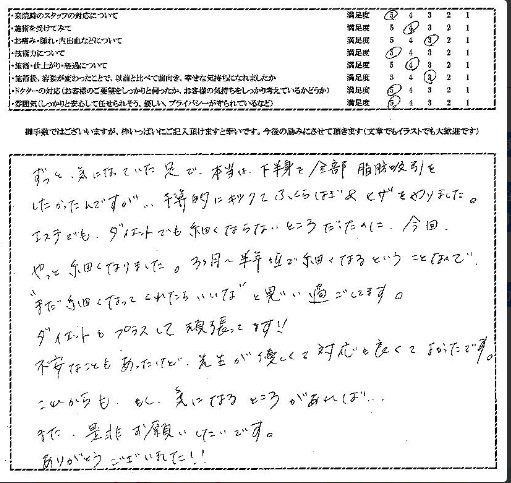 ・来院時のスタッフの対応について 満足度 5 4 3 2 1
・施術を受けてみて 満足度 5 4 3 2 1
・お痛み・腫れ・内出血などについて 満足度 5 4 3 2 1
・技術力について 満足度 5 4 3 2 1
・施術・仕上がり・経過について 満足度 5 4 3 2 1
・施術後、容姿が変わったことで、以前と比べて前向き、幸せな気持ちになれましたか 満足度 5 4 3 2 1
・ドクターの対応(お客様のご要望をしっかりと伺ったか、お客様の気持ちをしっかり考えているかどうか) 満足度 5 4 3 2 1
・雰囲気(しっかりと安心して任せられそう、優しい、プライバシーが守られているなど) 満足度 5 4 3 2 1
御手数ではございますが、枠いっぱいにご記入頂けますと幸いです。今後の励みにさせて頂きます(文章でもイラストでも大歓迎です)
ずっと、気になっていた足で、本当は、下半身で全部 脂肪吸引を
したかったんですが、、予算的にキツくてふくらはぎとヒザをやりました。
エステでも、ダイエットでも細くならないところだったのに、今回、
やっと細くなりました。3ヶ月〜半年位で細くなるということなので、
"まだ細くなってくれたらいいな"と思い過ごしてます。
ダイエットもプラスして頑張ってます!!
不安なこともあったけど、先生が優しくて対応も良くてよかったです。
これからも、もし、気になるところがあれば…
また、是非お願いしたいです。
ありがとうございました!!